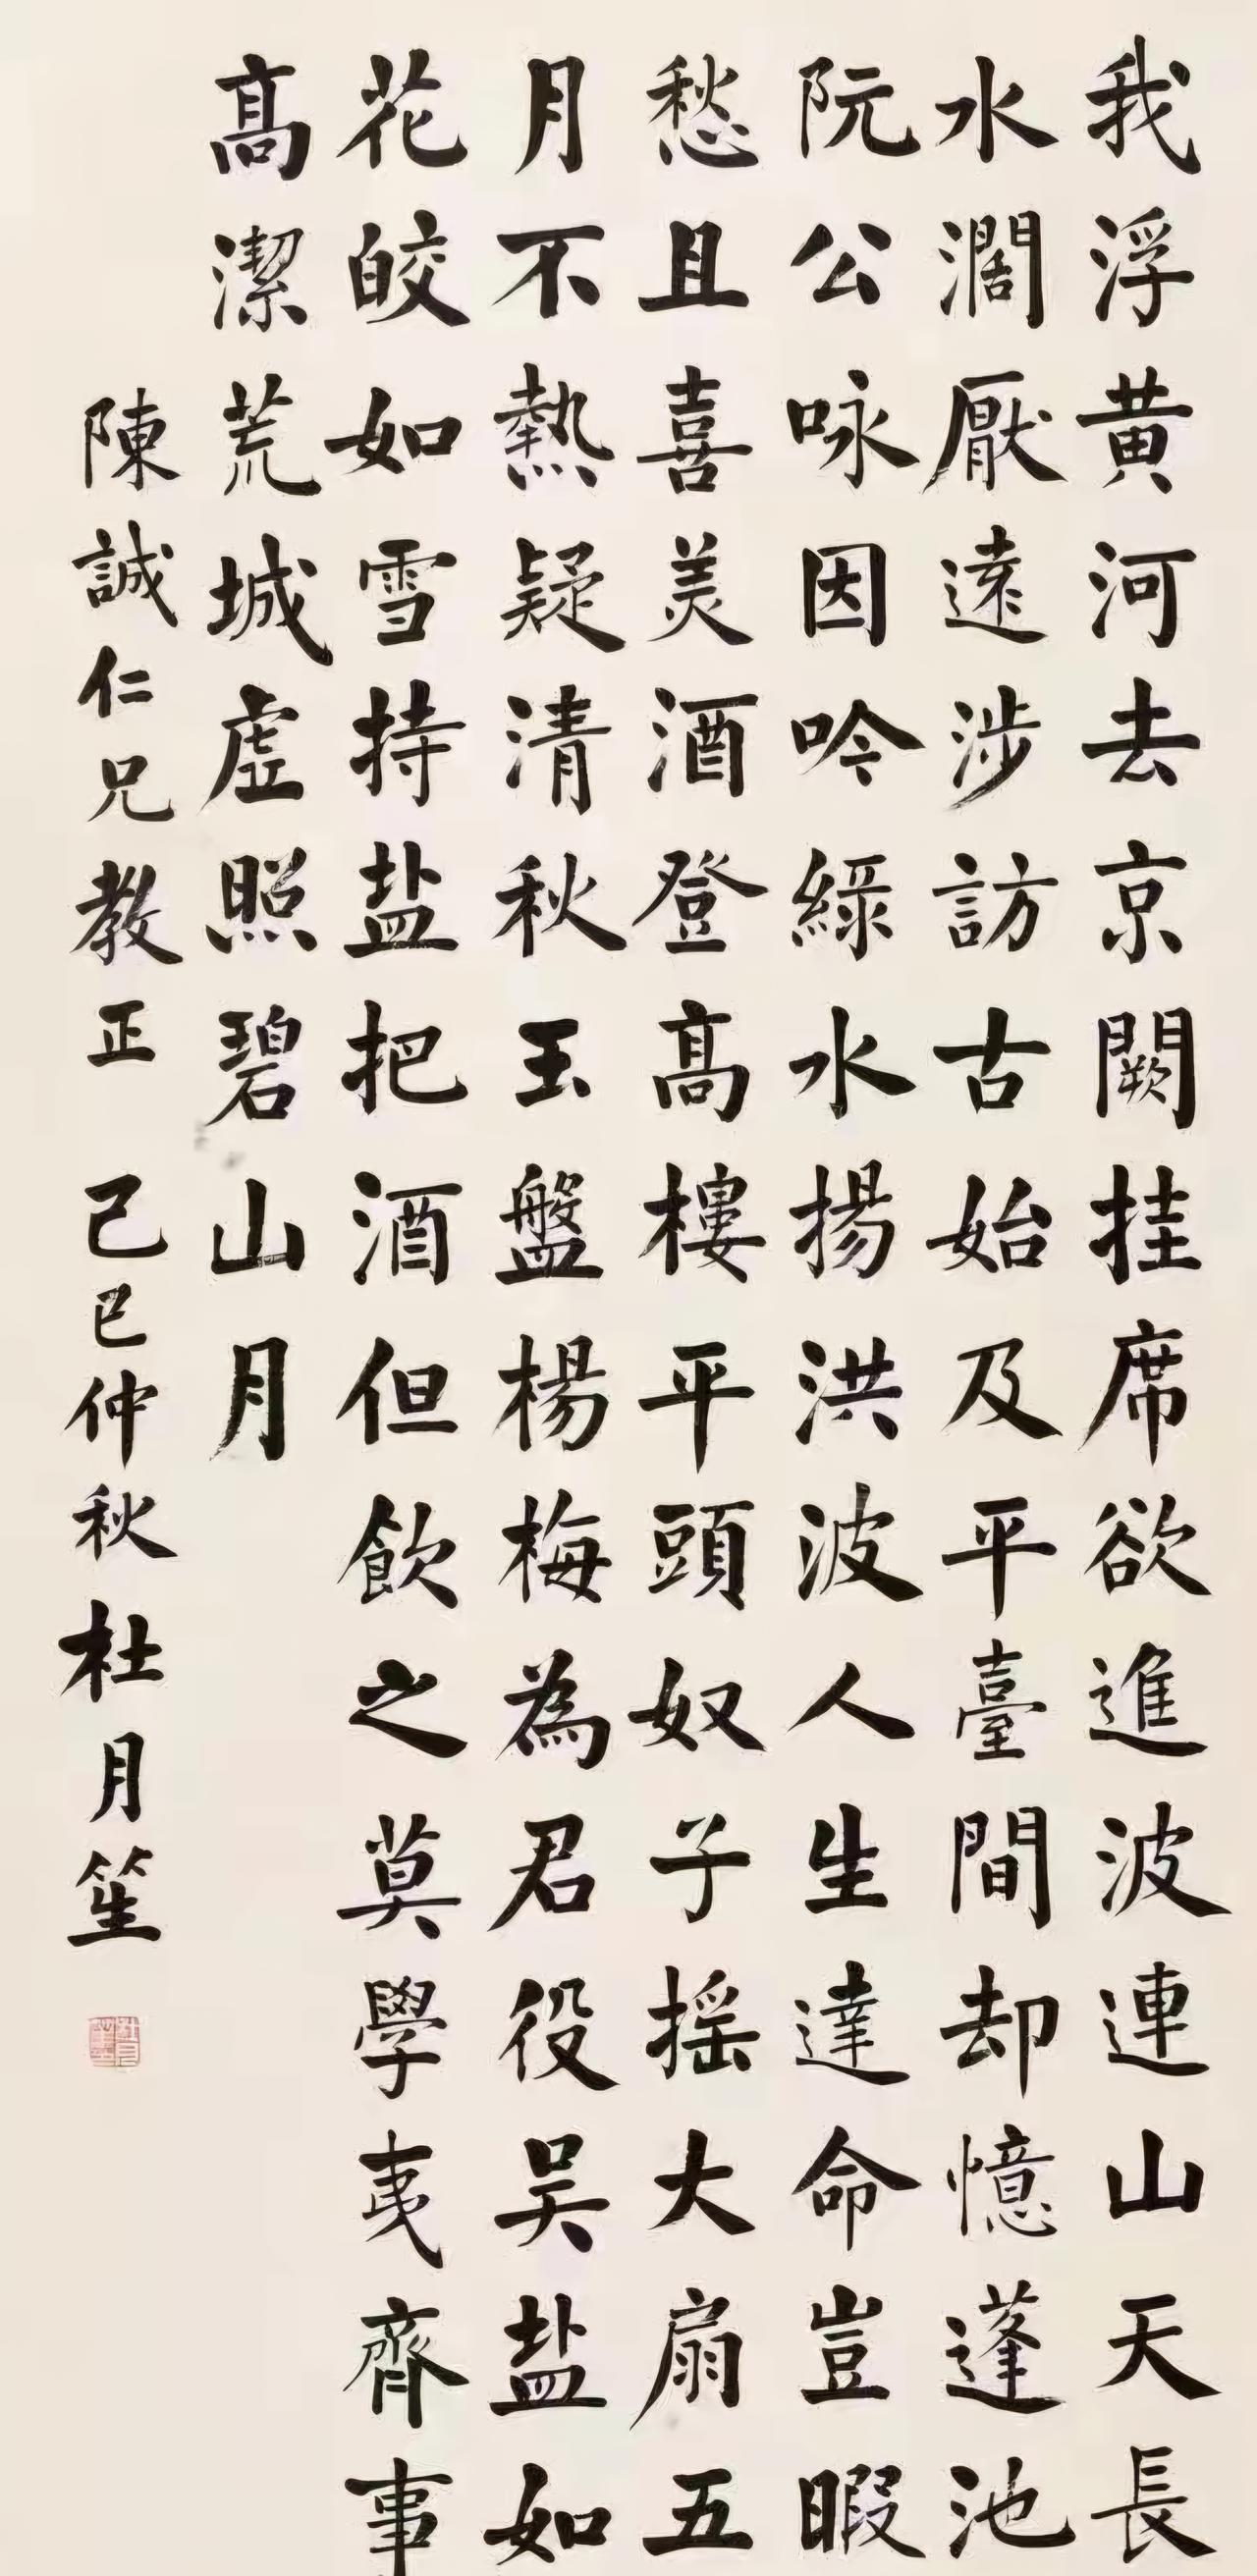 我浮黄河去京闕挂席欲進波連山天長
水濶厭遠涉訪古始及平臺間却憶蓬池
阮公咏因吟綠水揚洪波人生達命豈暇
愁且喜美酒登髙樓平頭奴子摇大扇五
月不熱疑清秋玉盤楊梅為君役吴盐如
花皎如雪持盐把酒但飲之莫學夷齊事
髙潔荒城虛照碧山月
陳誠仁兄教正 己巳仲秋杜月笙